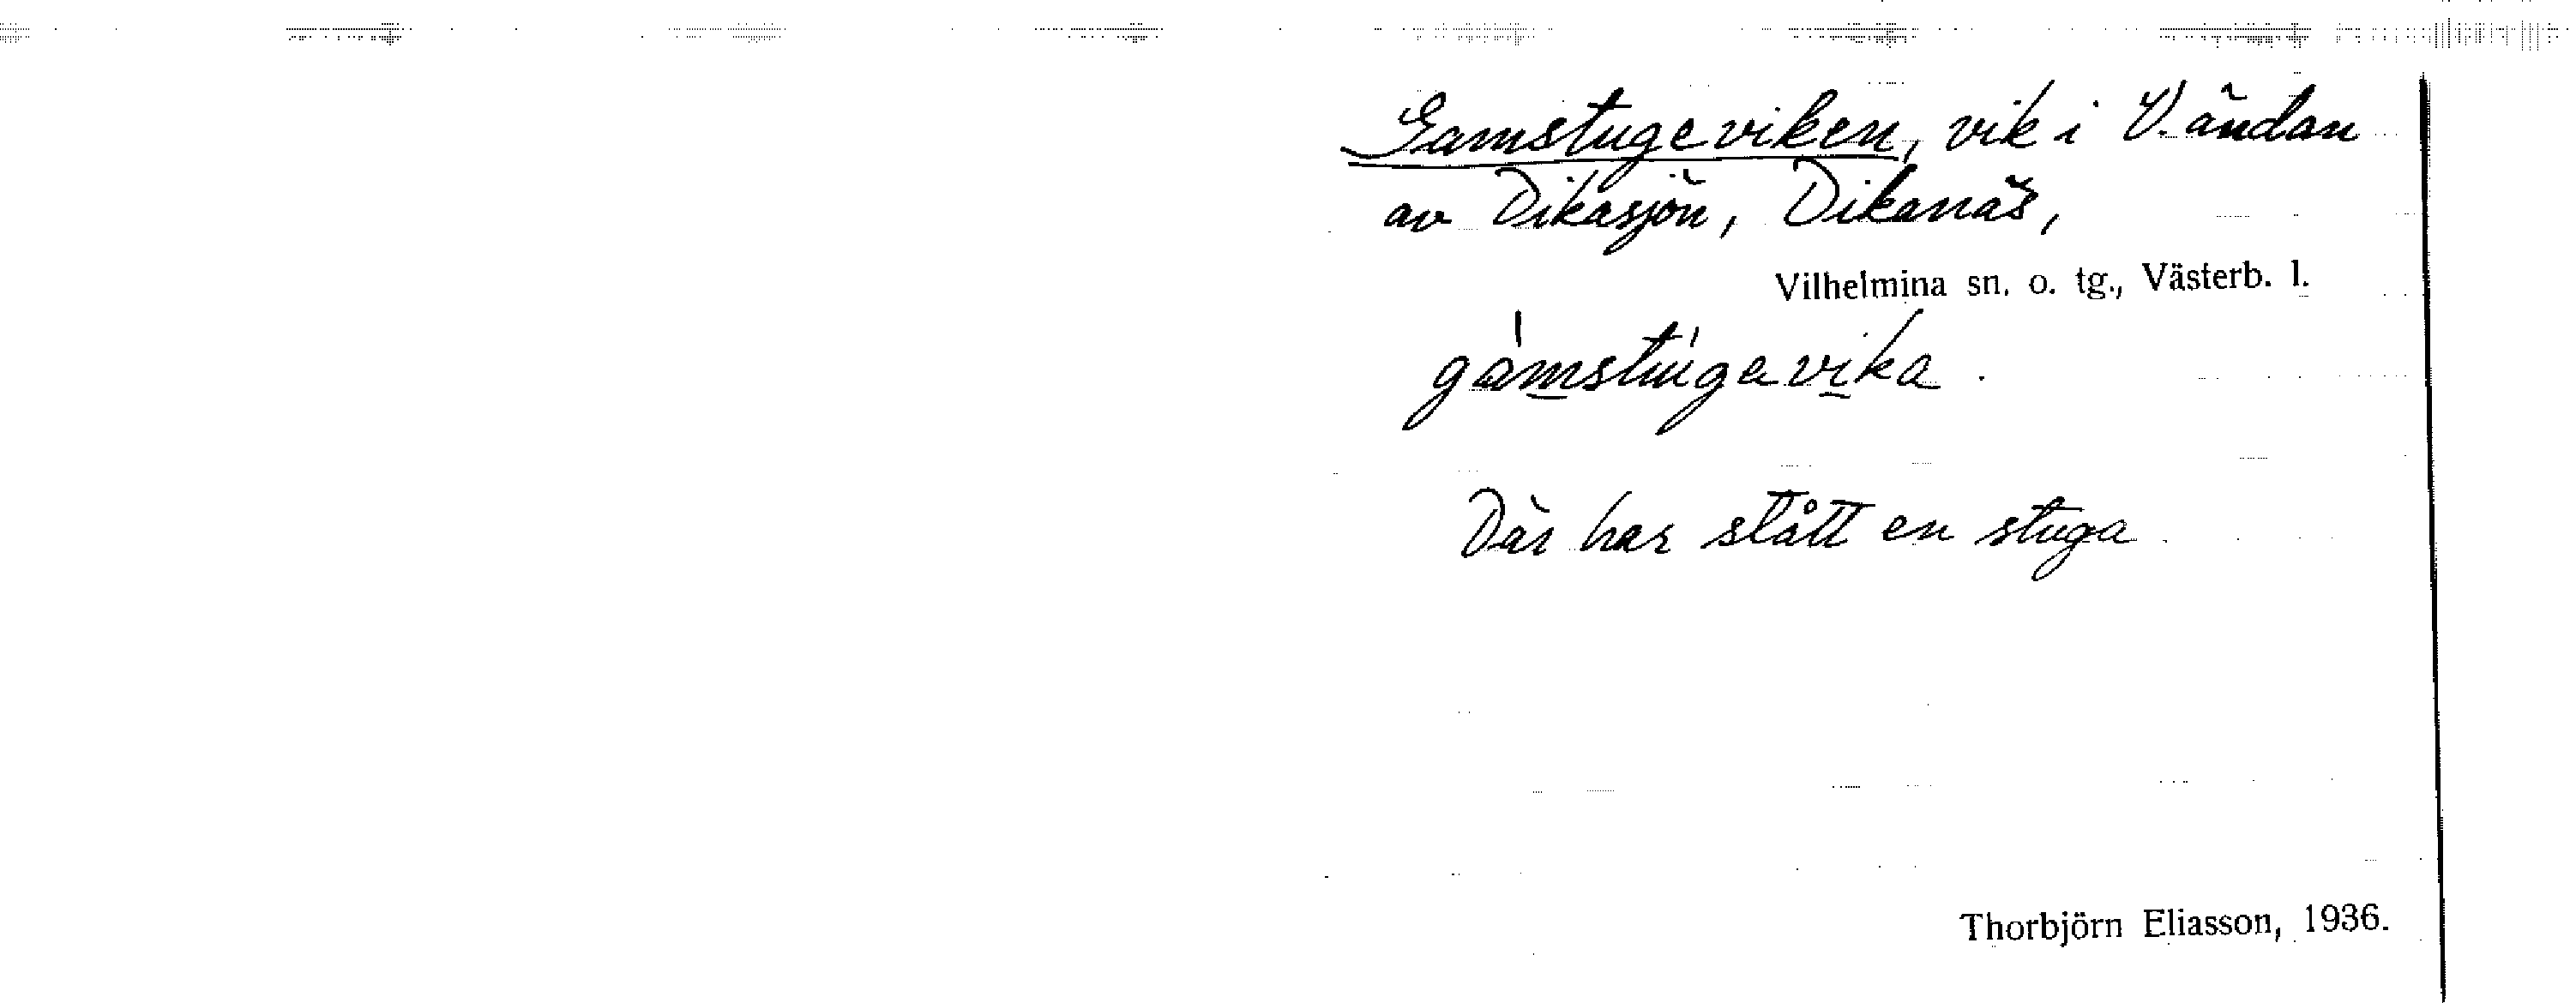 Gamstugeviken, vik i V. ändan
av Dikasjön, Dikanäs,
Vilhelmina sn. o. tg., Västerb. l.
gàmstúgavika.
Där har stått en stuga.
Thorbjörn Eliasson, 1936.